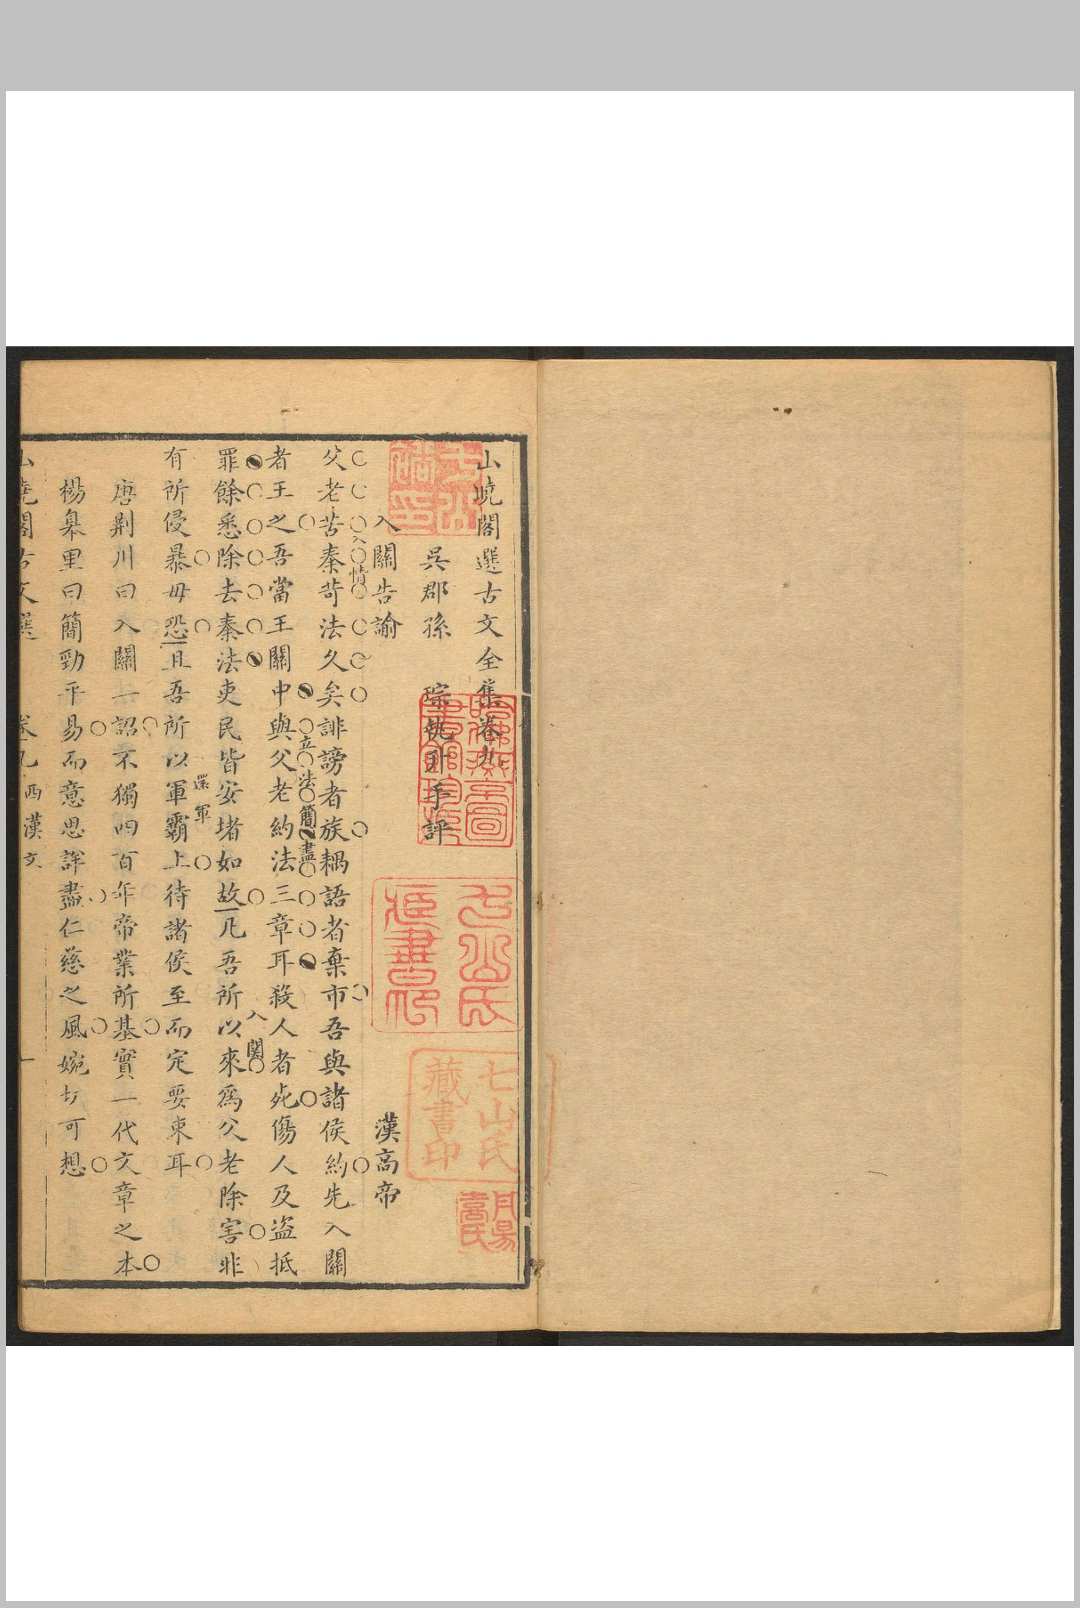 山曉閣選古文全集卷九
吳郡孫 琮執升手評
入關告諭 漢高帝
父老苦秦苛法久矣誹謗者族耦語者棄市吾與諸侯約先入關
入情
者王之吾當王關中與父老約法三章耳殺人者死傷人及盜抵
立法簡盡
罪餘悉除去秦法吏民皆安堵如故凡吾所以來為父老除害非
入關
有所侵暴毋恐且吾所以軍霸上待諸侯至而定要束耳
還軍
唐荆川曰入關一詔不獨四百年帝業所基實一代文章之本
楊皋里曰簡勁平易而意思詳盡仁慈之風婉切可想
山曉閣古文選 卷九 西漢文 一
七山氏
藏書印